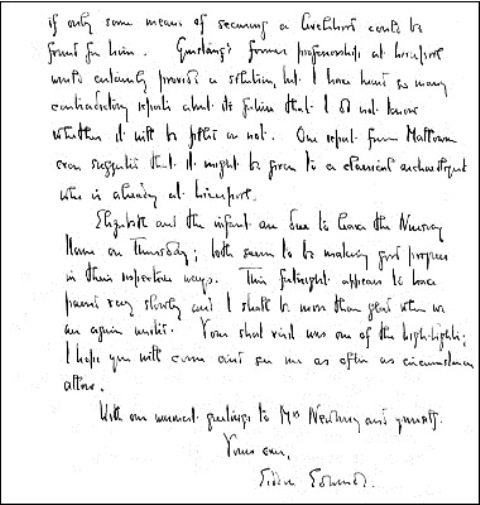 if only some means of securing a livelihood could be
found for him. Garstang's former professorship at Liverpool
would certainly provide a solution, but I have heard so many
contradictory reports about its future that I do not know
whether it will be filled or not. One report from
even suggested that it might be given to a classical archaeologist
who is already at Liverpool.
Elizabeth and the infant are due to leave the Nursing
Home on Thursday; both seem to be making good progress
in their respective ways. This fortnight appears to have
passed very slowly and I shall be more than glad when we
are again united. Your short visit was one of the high-lights;
I hope you will come and see me as often as circumstances
allow.
With our warmest greetings to Mrs Newberry and yourself.
Yours ever,